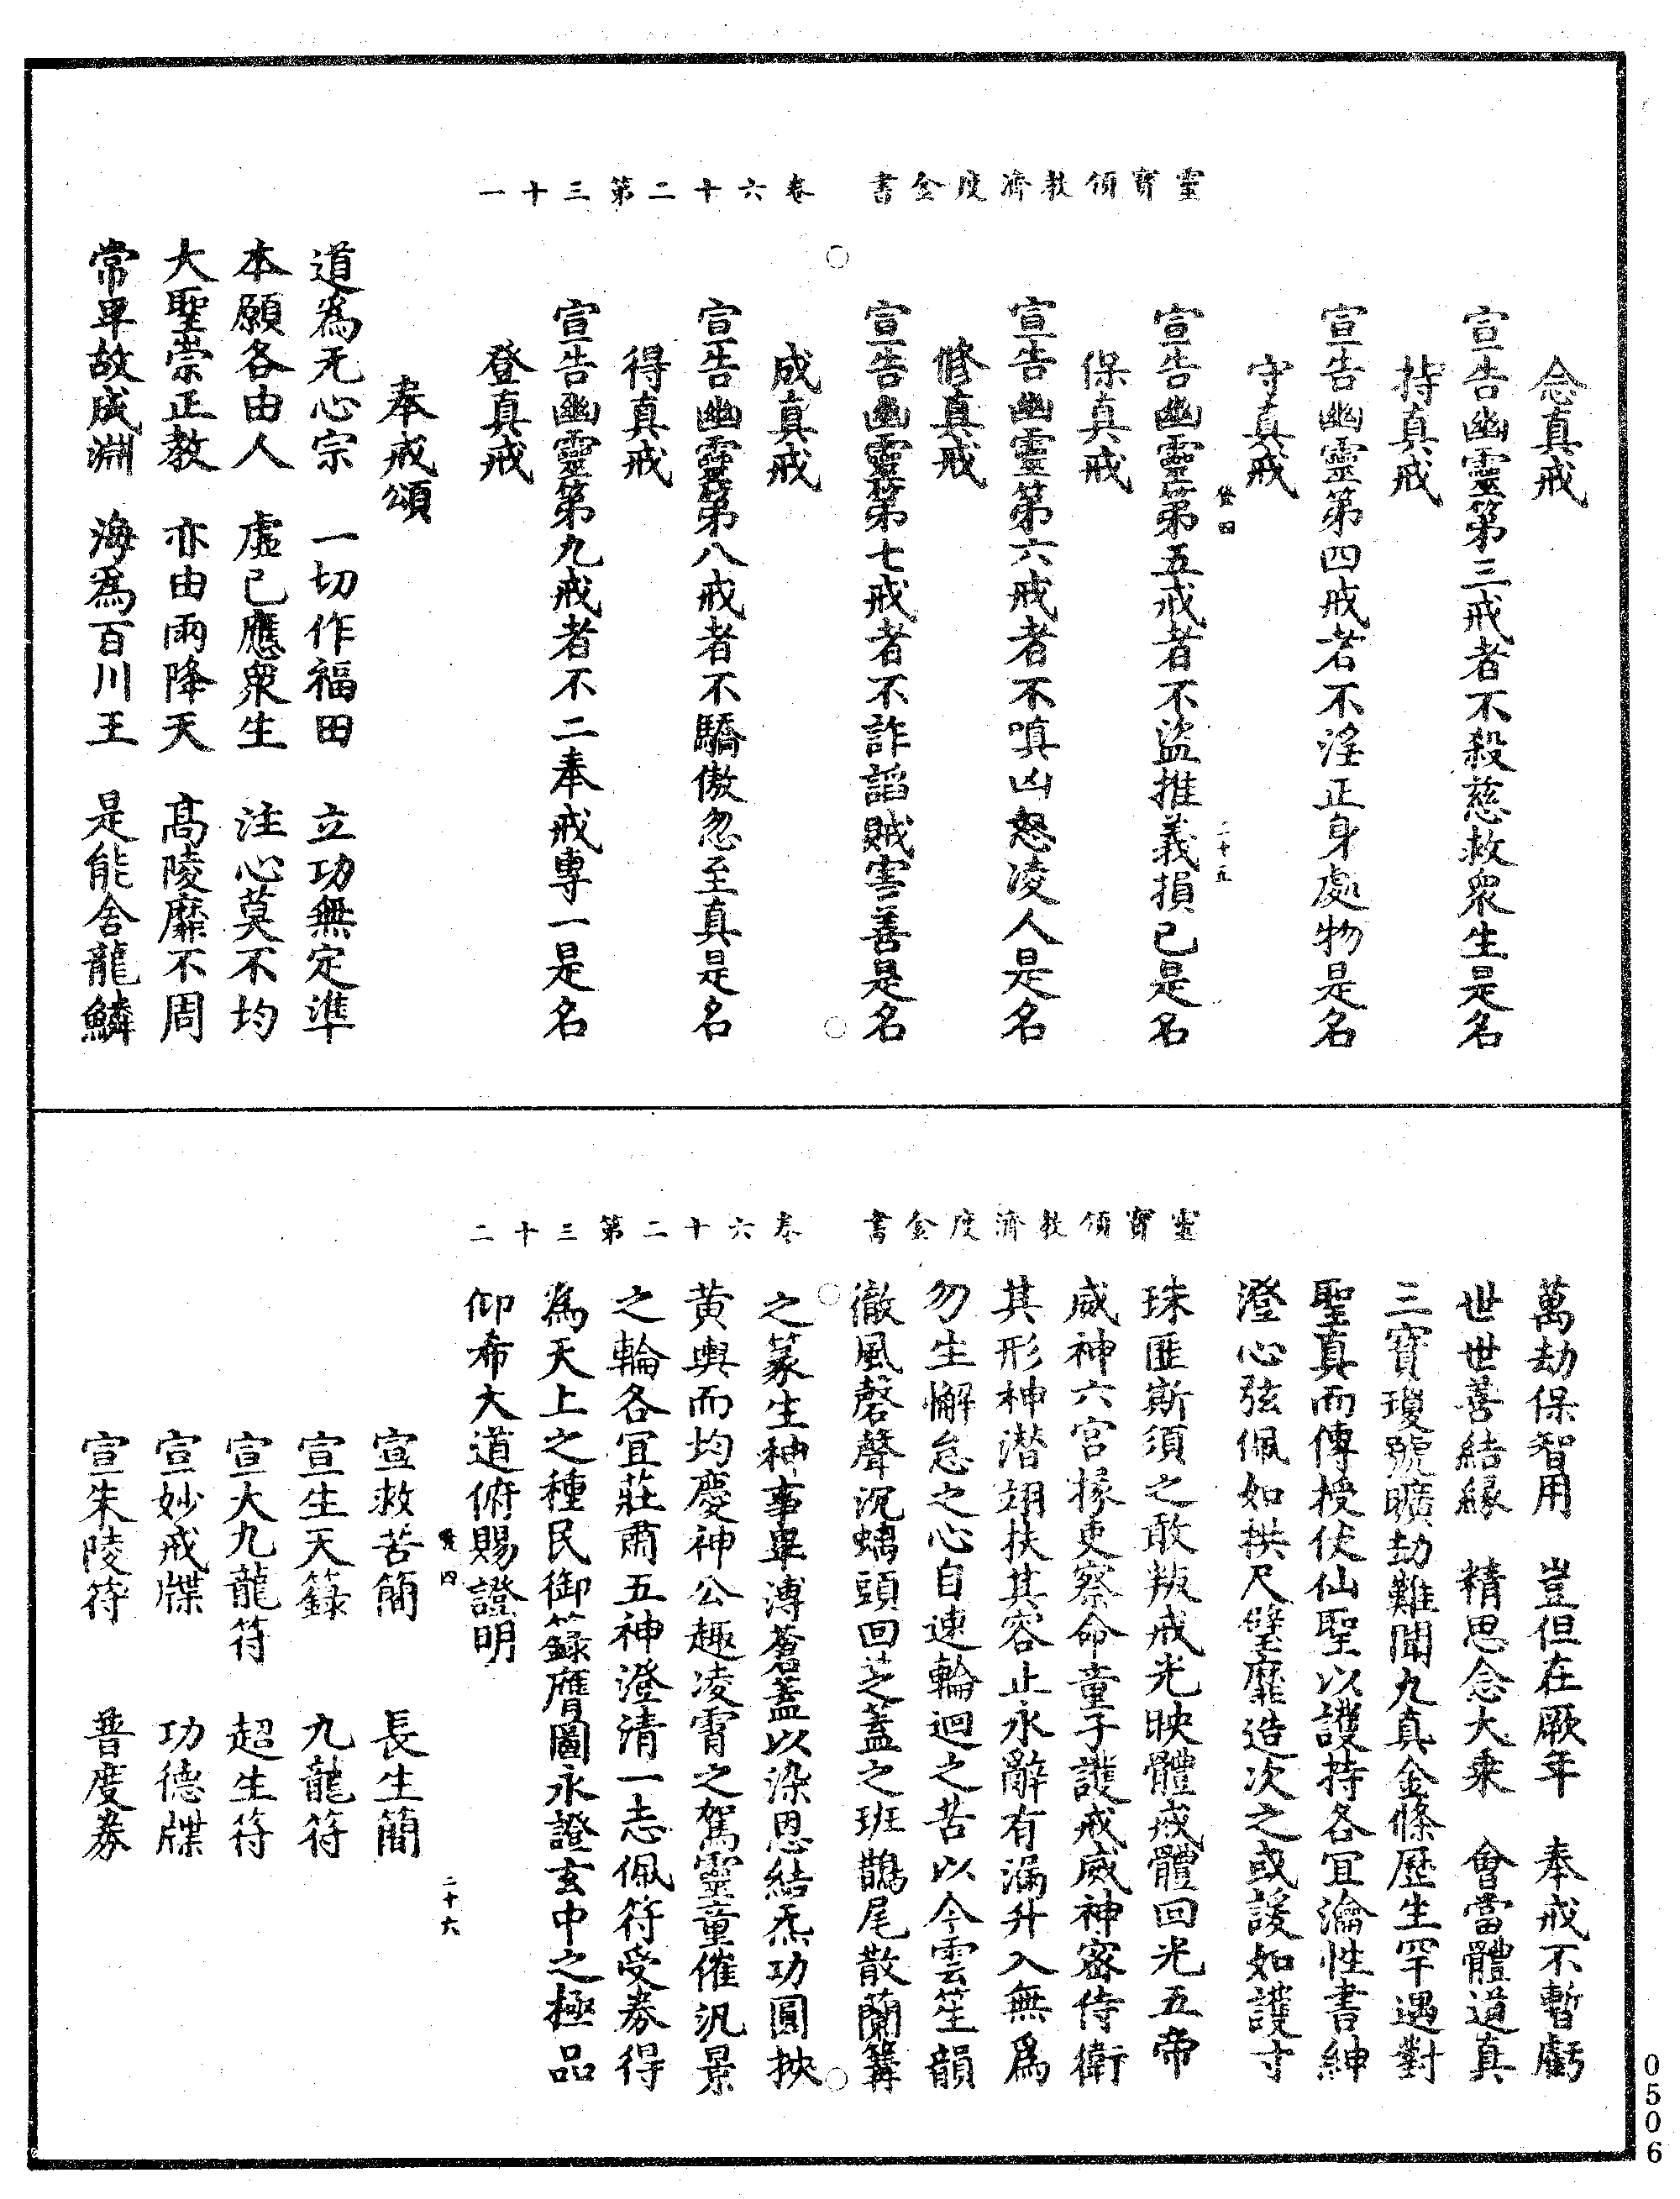 靈寶領教濟度金書　卷六十二第三十一
念真戒
宣告幽靈第三戒者不殺慈救衆生是名
持真戒
宣告幽靈第四戒者不淫正身處物是名
守真戒
宣告幽靈第五戒者不盜推義損己是名
保真戒
宣告幽靈第六戒者不嗔凶怒凌人是名
修真戒
宣告幽靈第七戒者不詐謟賊害善是名
成真戒
宣告幽靈第八戒者不驕傲忽至真是名
得真戒
宣告幽靈第九戒者不二奉戒專一是名
登真戒
奉戒頌
道為无心宗　一切作福田　立功無定準
本願各由人　虛已應衆生　注心莫不均
大聖崇正教　亦由雨降天　高陵靡不周
常卑故成淵　海為百川王　是能舍龍鱗
二十五
靈寶領教濟度金書　卷六十二第三十二
萬劫保智用　豈但在厥年　奉戒不暫虧
世世善結緣　精思念大乘　會當體道真
三寶瓊號曠劫難聞九真金條歷生罕遇對
聖真而傳授伏仙聖以護持各宜瀹性書紳
澄心弦佩如拱尺璧靡造次之或諼如護寸
珠匪斯須之敢叛戒光映體戒體回光五帝
威神六宮掾吏察命童子護戒威神密侍衛
其形神潜翊扶其容止永辭有漏升入無為
勿生懈怠之心自速輪迴之苦以今雲笙韻
徹風磬聲沉螭頭回芝蓋之班鵲尾散蘭篝
之篆生神事畢溥蒼蓋以染恩結炁功圓挾
黃輿而均慶神公趣凌霄之駕靈童催汎景
之輪各宜莊肅五神澄清一志佩符受券得
為天上之種民御籙膺圖永證玄中之極品
仰希大道俯賜證明
二十六
宣救苦簡　長生簡
宣生天籙　九龍符
宣大九龍符　超生符
宣妙戒牒　功德牒
宣朱陵符　普度券
0506